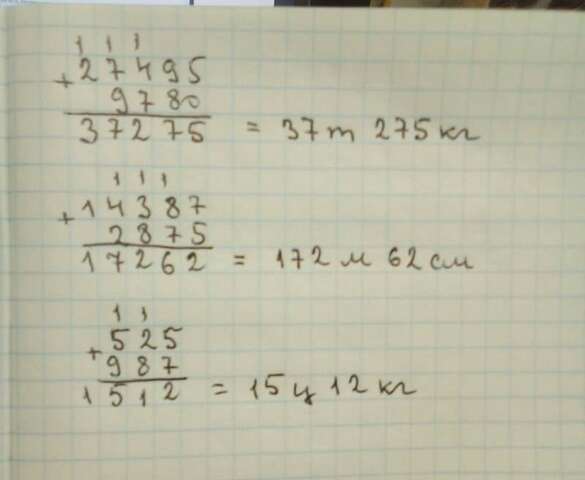 1 1 1
+ 27495
9780
37275 = 37 т 275 кг
1 1 1
+ 14387
2875
17262 = 172 м 62 см
1 1
+ 525
987
1512 = 15 ц 12 кг